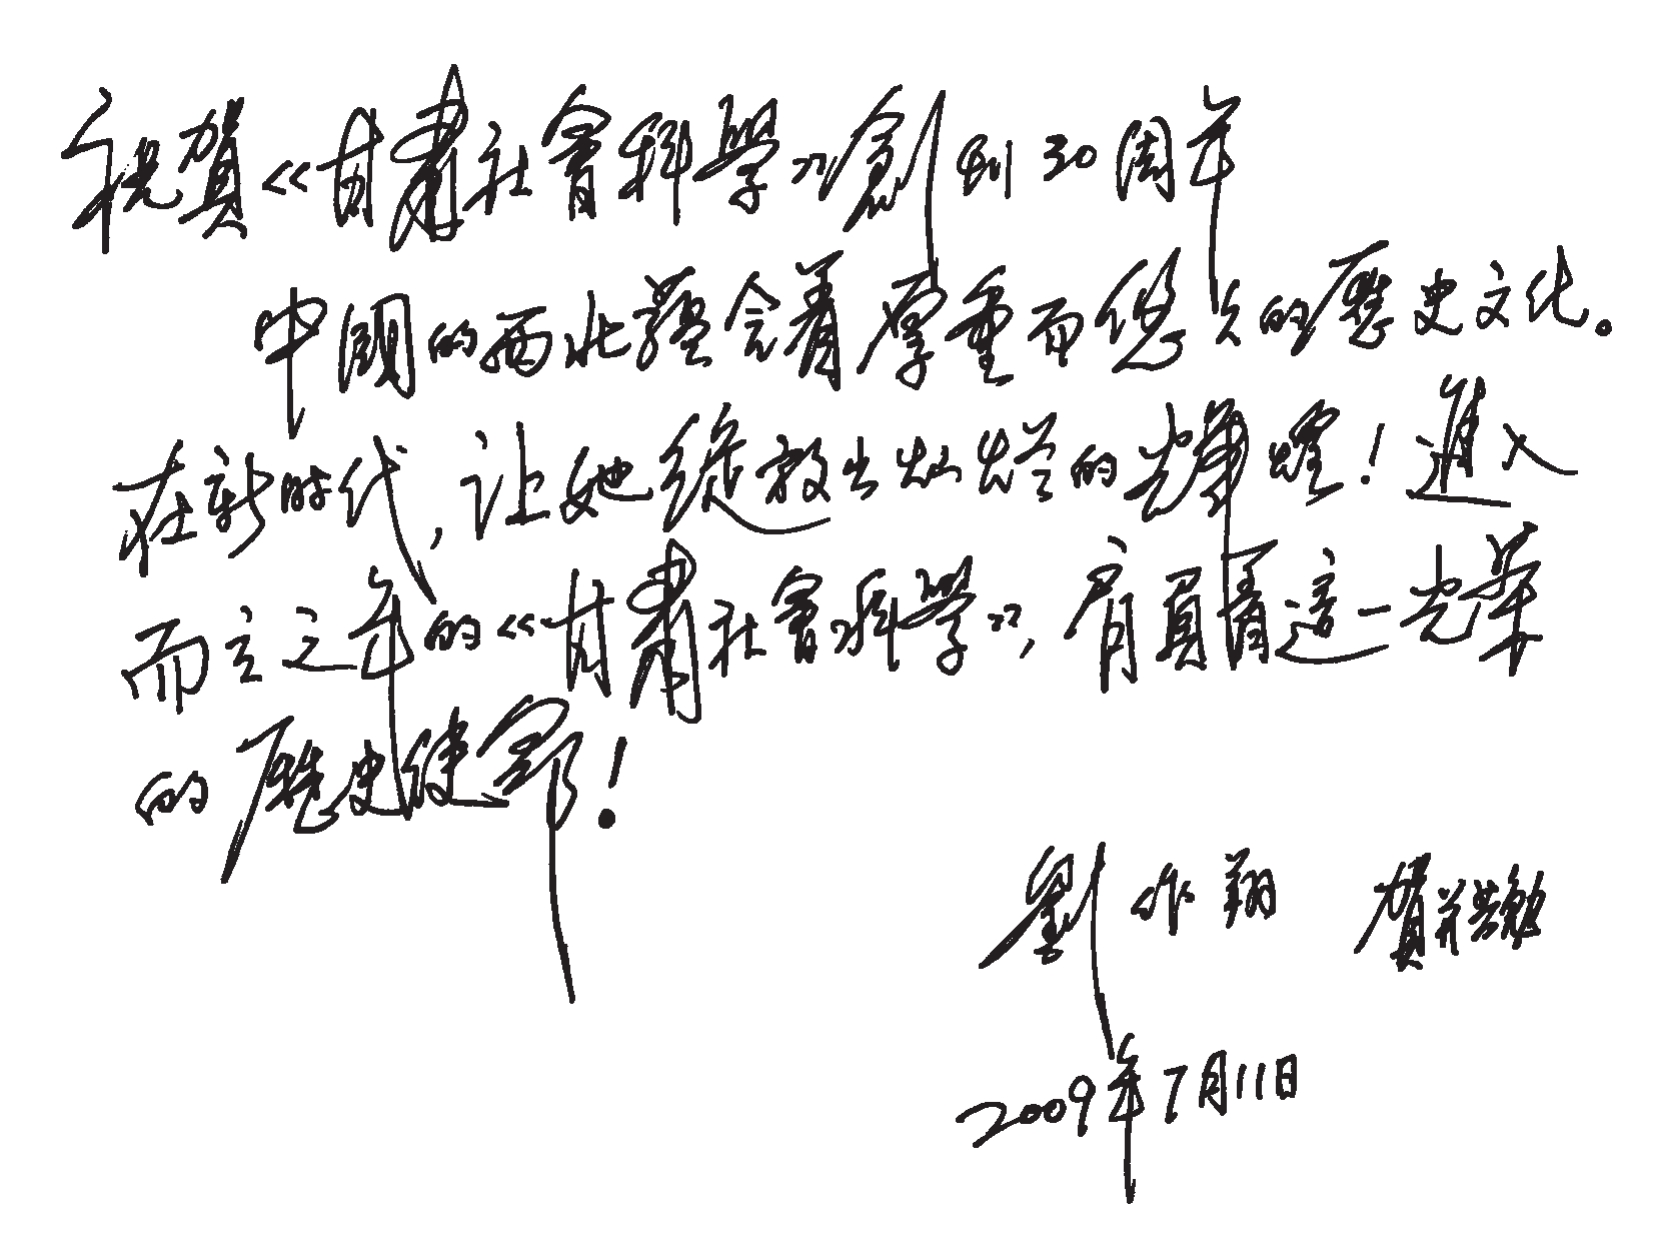 祝賀《甘肅社會科學》創刊30周年
中國的西北蘊含着厚重而悠久的歷史文化。
在新时代，让她綻放出灿烂的光輝耀！進入
而立之年的《甘肅社會科學》，肩負着這一光荣
的歷史使命！
劉作翔 賀并共勉
2009年7月11日